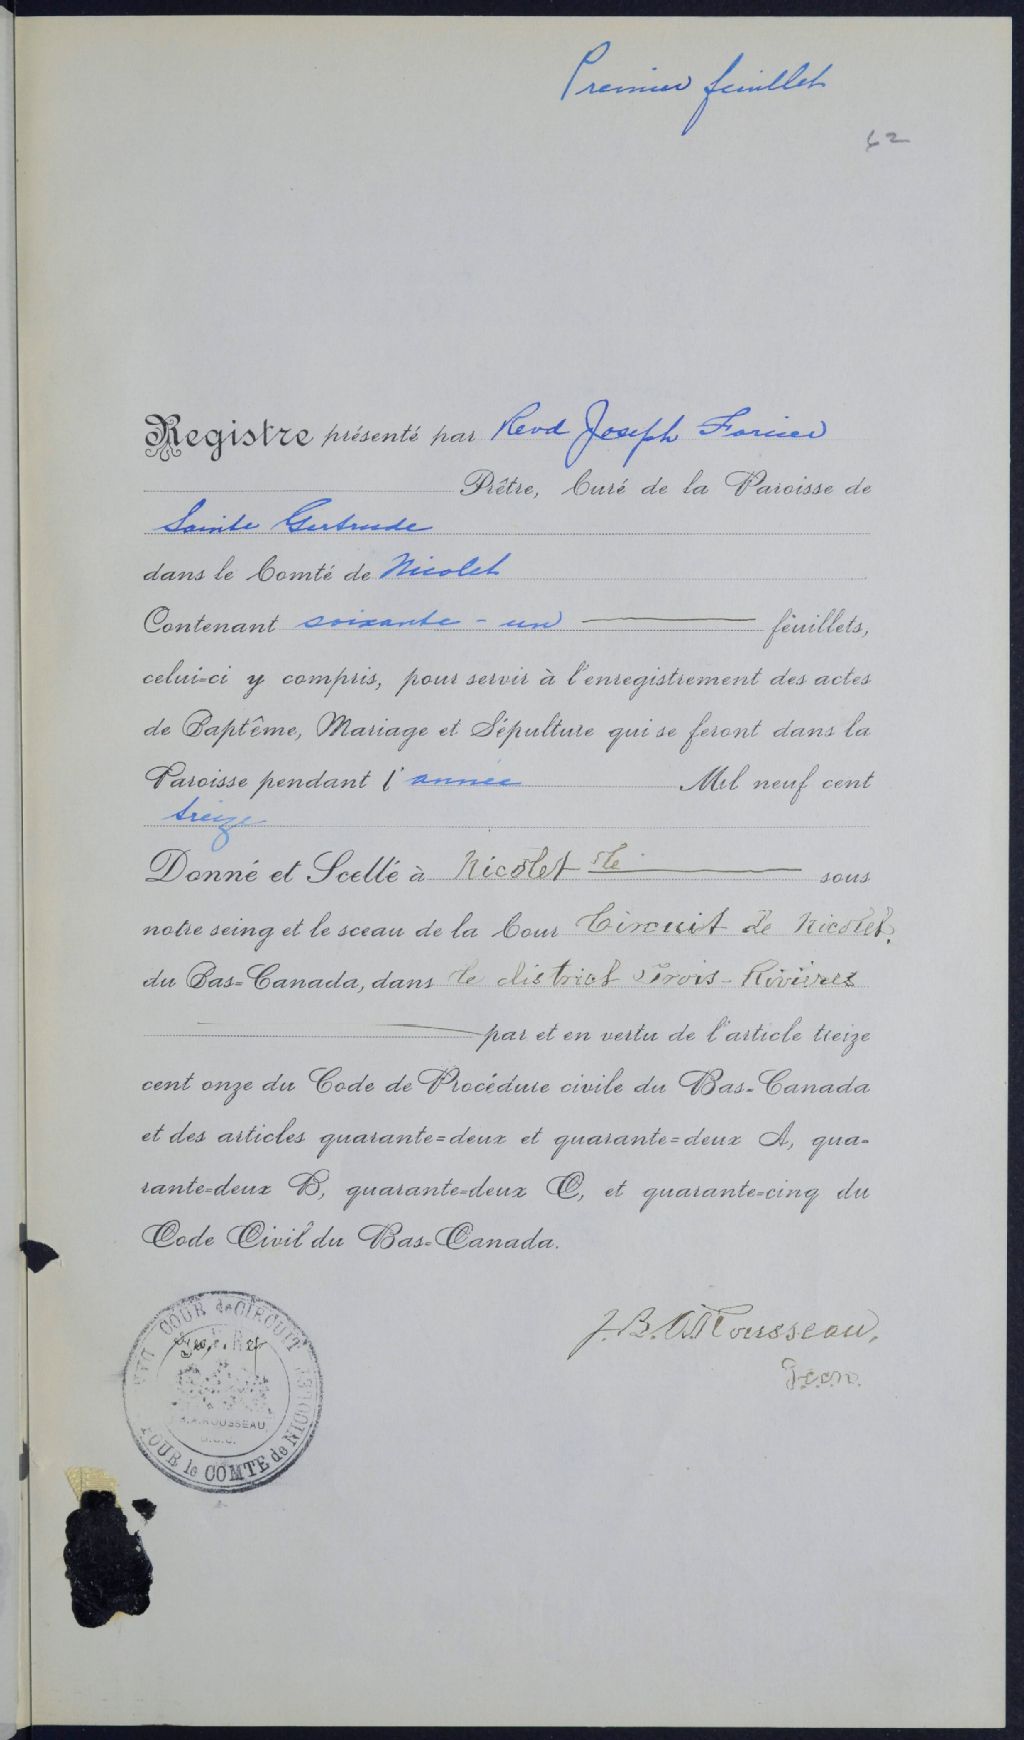 Premier feuillet
62
Registre présenté par Revd Joseph Forcier
Prêtre, Curé de la Paroisse de
Sainte Gertrude
dans le Comté de Nicolet
Contenant soixante - un feuillets,
celui-ci y compris, pour servir à l'enregistrement des actes
de Baptême, Mariage et Sépulture qui se feront dans la
Paroisse pendant l'année Mil neuf cent
treize
Donné et Scellé à Nicolet sous
notre seing et le sceau de la Cour Circuit de Nicolet.
du Bas-Canada, dans le district Trois-Rivières
par et en vertu de l'article treize
cent onze du Code de Procédure civile du Bas-Canada
et des articles quarante=deux et quarante=deux A, qua-
rante=deux B, quarante=deux C, et quarante=cinq du
Code Civil du Bas-Canada.
COUR de CIRCUIT
ROUSSEAU
POUR le COMTE de NICOLET
J. B. A. Rousseau,